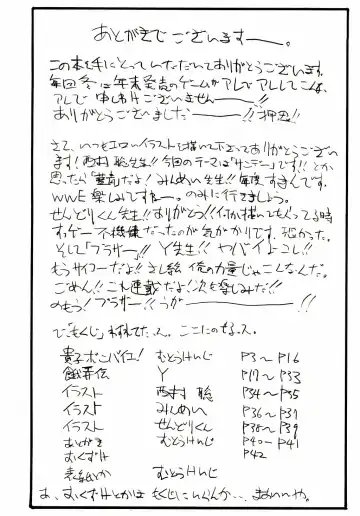 あとがきでございますー。
この本を手にとっていただいてありがとうございます。
毎回冬は年末発売のゲームがアレでアレしてこんな、
アレで申しわけございません――!!
ありがとうございました――!! 押忍!!
さて、いつもエロいイラストを描いて下さってありがとうござい
ます! 西村聡先生!! 今回のテーマは「サンデー」です!! とか
思ったら だよ! みんめい先生!! 毎度すまんです。
WWE楽しみですねー。のみに行きましょう。
せんどりくん先生!! ありがとう!! 描いてもらってる時
すっゲー不機嫌だったのが気がかりです。恐かった。
そして「ブラザー」!! Y先生!! ヤバイよコレ!!
もうサイコーだよ!! さし絵 俺の力量じゃこんなんだ。
ごめん!! これ連載だよ! 次も楽しみだ!!
のもう! ブラザー!! うがー――!!
で「もくじ」忘れてた…ス。ここにのせるス。
貴子ボンバイエ! むとうけいじ P3〜P16
餓狼伝 Y P17〜P33
イラスト 西村聡 P34〜P35
イラスト みんめい P36〜P37
イラスト せんどりくん P38〜P39
あとがき むとうけいじ P40〜P41
おくずけ P42
表紙とか むとうけいじ
ま、おくずけとかは もくじにいらんか…。まぁいいや。